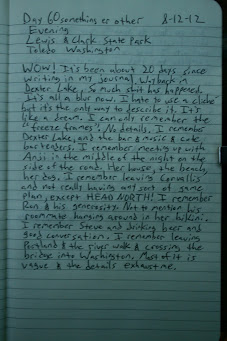 Day 60 something or other 8-12-12
Evening
Lewis & Clark State Park
Toledo Washington
WOW! It's been about 20 days since
writing in my journal. Wayback in
Dexter Lake. So much shit has happened.
It's all a blur now. I hate to use a cliche
but it's the only way to describe it. It's
like a dream. I can only remember the
"freeze frames". No details. I remember
Dexter Lake, and the bar & music & cute
bartenders. I remember meeting up with
Anjs in the middle of the night on the
side of the road. Her house, the beach,
her dog. I remember leaving Corvallis
and not really having any sort of game
plan, except HEAD NORTH! I remember
Ron & his generosity. Not to mention his
roommate hanging around in her bikini.
I remember Steve and drinking beer and
good conversation. I remember leaving
Portland & the river walk & crossing the
bridge into Washington. Most of it is
vague & the details exhaust me.